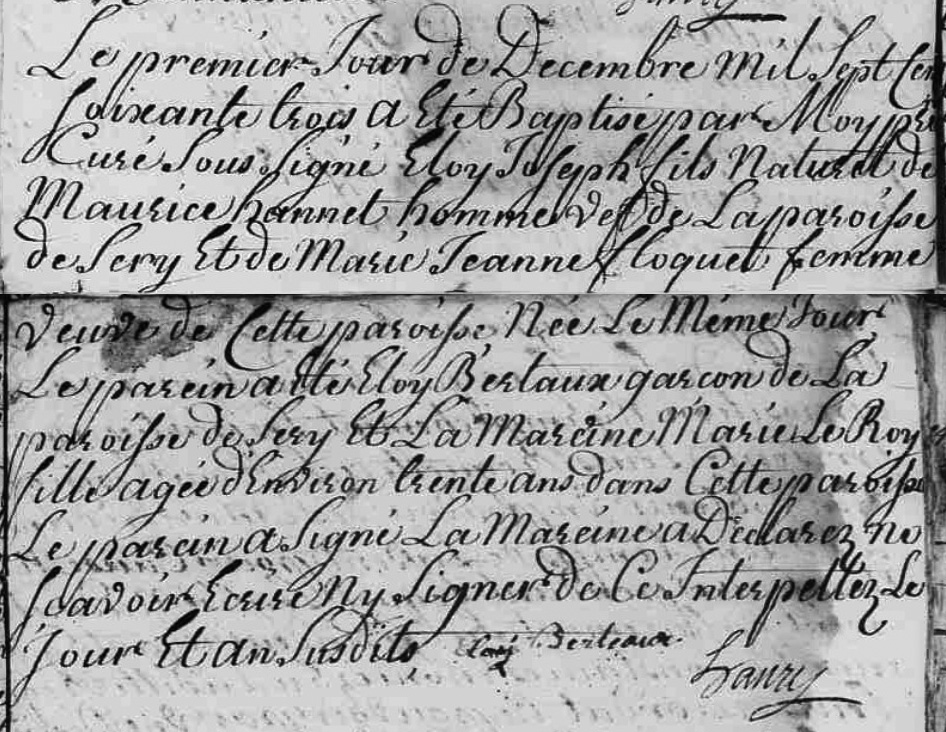 Le premier Jour de Decembre Mil Sept Cen
soixante trois a Eté Baptisé par Moy pre
Curé Sous Signé Eloy Joseph fils Naturel de
Maurice hannet homme vef de La paroisse
de Sery Et de Marie Jeanne floquet femme
veuve de Cette paroisse Née Le Même Jour
Le parein a Eté Eloy Bertaux garcon de La
paroisse de Sery Et La Mareine Marie Le Roy
fille agée d'Environ trente ans dans Cette paroisse
Le parein a Signé La Mareine a Declarez ne
scavoir Ecrire Ny Signer de Ce Interpellez Le
Jour Et an Susdits Eloy Berteaux